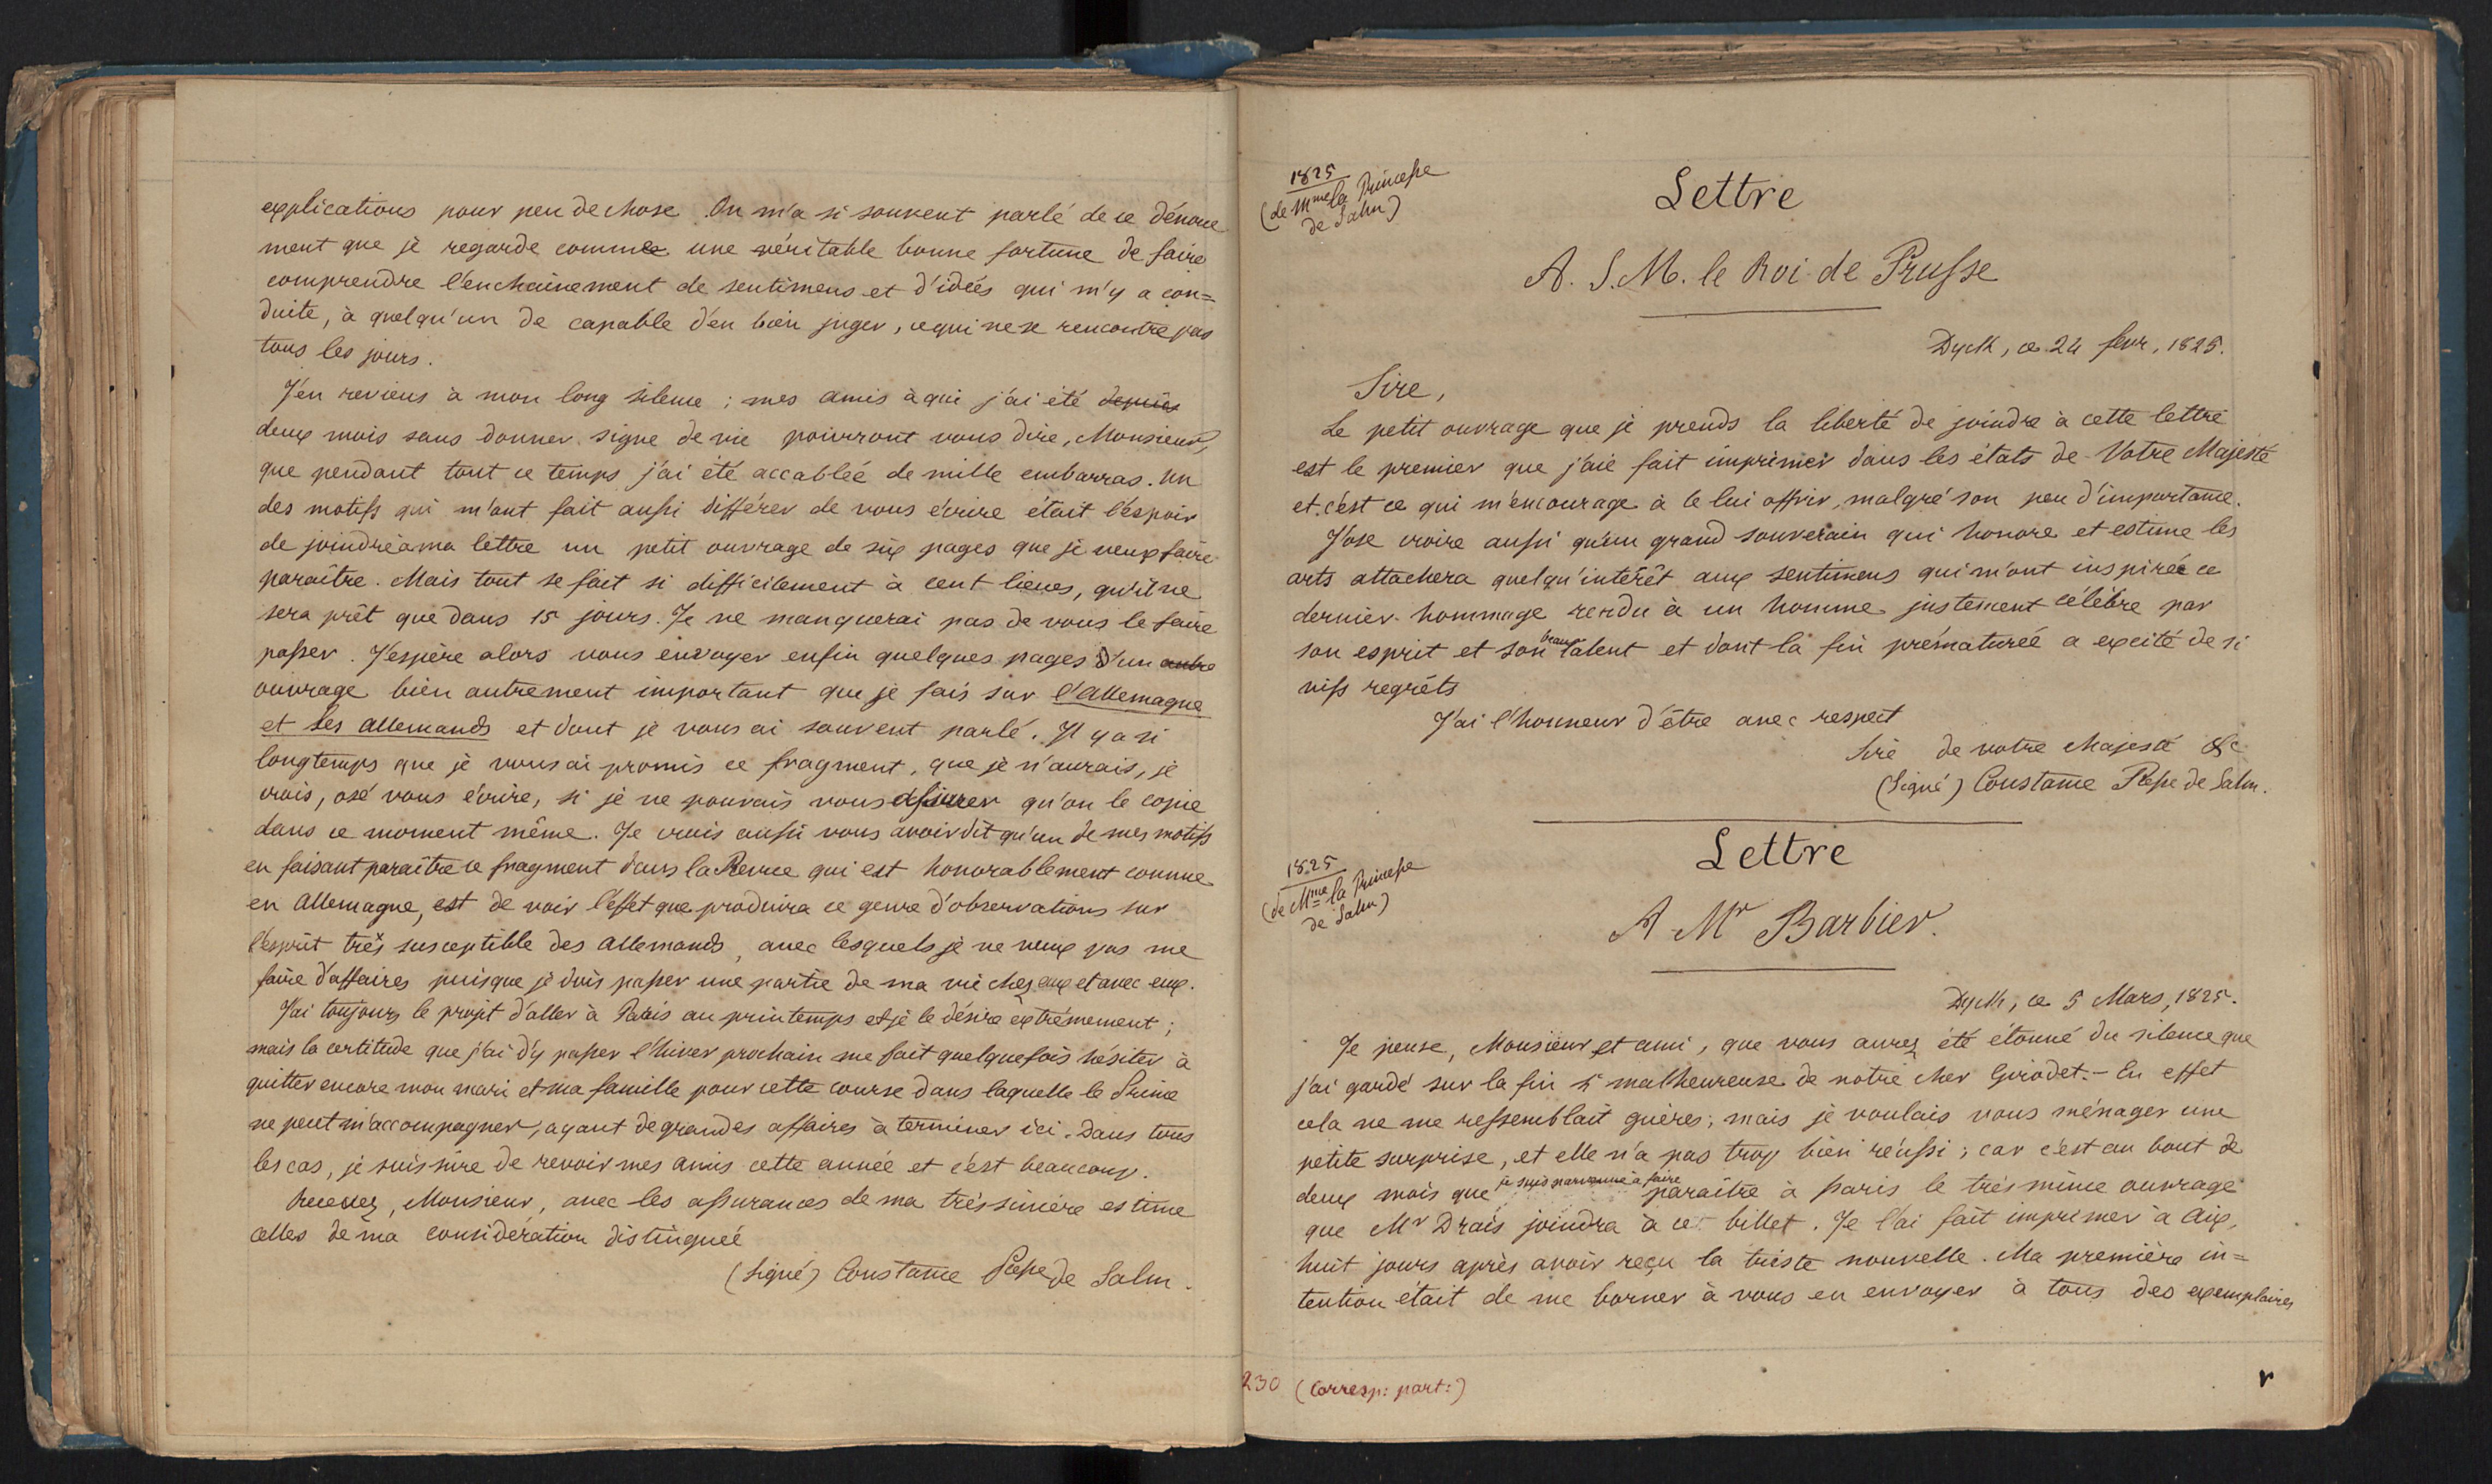 explications pour peu de chose. On m'a si souvent parlé de ce dénoue
ment que je regarde comme une véritable bonne fortune de faire
comprendre l'enchainement de sentimens et d'idées qui m'y a con=
duite, à quelqu'un de capable d'en bien juger, ce qui ne se rencontre pas
tous les jours.
J'en reviens à mon long silence ; mes amis à qui j'ai été depuis
deux mois sans donner signe de vie pourront vous dire, Monsieur,
que pendant tout ce temps j'ai été accablée de mille embarras. Un
des motifs qui m'ont fait aussi différer de vous écrire était l'espoir
de joindre à ma lettre un petit ouvrage de six pages que je veux faire
paraître. Mais tout se fait si difficilement à cent lieues, qu'il ne
sera prêt que dans 15 jours. Je ne manquerai pas de vous le faire
passer. J'espère alors vous envoyer enfin quelques pages d'un autre
ouvrage bien autrement important que je fais sur l'allemagne
et les allemands et dont je vous ai souvent parlé. Il y a si
longtemps que je vous ai promis ce fragment, que je n'aurais, je
crois, osé vous écrire, si je ne pouvais vous assurer qu'on le copie
dans ce moment même. Je crois aussi vous avoir dit qu'un de mes motifs
en faisant paraître ce fragment dans la Revue qui est honorablement connue
en Allemagne, est de voir l'effet que produira ce genre d'observations sur
l'esprit très susceptible des allemands, avec lesquels je ne veux pas me
faire d'affaires puisque je dois passer une partie de ma vie chez eux et avec eux.
J'ai toujours le projet d'aller à Paris au printemps et je le désire extrêmement ;
mais la certitude que j'ai d'y passer l'hiver prochain me fait quelquefois hésiter à
quitter encore mon mari et ma famille pour cette course dans laquelle le Prince
ne peut m'accompagner, ayant de grandes affaires à terminer ici. Dans tous
les cas, je suis sûre de revoir mes amis cette année et c'est beaucoup.
Recevez, Monsieur, avec les assurances de ma très sincère estime
celles de ma considération distinguée
(signé) Constance Psse de Salm.
1825
(de Mme la Princesse
de Salm)
Lettre
A. S. M. le Roi de Prusse
Dyck, ce 24 fevr, 1825.
Sire,
Le petit ouvrage que je prends la liberté de joindre à cette lettre
est le premier que j'aie fait imprimer dans les états de Votre Majesté
et c'est ce qui m'encourage à le lui offrir, malgré son peu d'importance.
J'ose croire aussi qu'un grand souverain qui honore et estime les
arts attachera quelqu'intérêt aux sentimens qui m'ont inspirée ce
dernier hommage rendu à un homme justement célèbre par
son esprit et son beau talent et dont la fin prématurée a excité de si
vifs regrets
J'ai l'honneur d'être avec respect
Sire de votre Majesté &c
(Signé) Constance Psse de Salm.
1825
(de Mme la Princesse
de Salm)
Lettre
A Mr Barbier.
Dyck, ce 5 Mars, 1825.
Je pense, Monsieur et ami, que vous aurez été étonné du silence que
j'ai gardé sur la fin si malheureuse de notre cher Girodet. – En effet
cela ne me ressemblait guères; mais je voulais vous ménager une
petite surprise, et elle n'a pas trop bien réussi ; car c'est au bout de
deux mois que je suis parvenue à faire paraître à Paris le très mince ouvrage
que Mr Drais joindra à ce billet. Je l'ai fait imprimer à Aix,
huit jours après avoir reçu la triste nouvelle. Ma première in=
tention était de me borner à vous en envoyer à tous des exemplaires
230 (Corresp: part:)
r